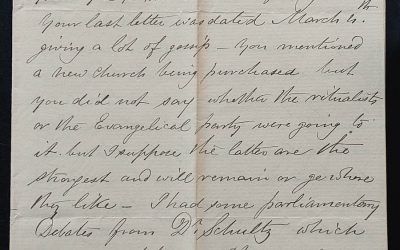 your last letter was dated March 4th.
giving a lot of gossip – you mentioned
a new church being purchased but
you did not say whether the ritualists
or the Evangelical party were going to
it. but I suppose the latter are the
strongest and will remain or go where
they like – I had some parliamentary
Debates from Dr Schultz which